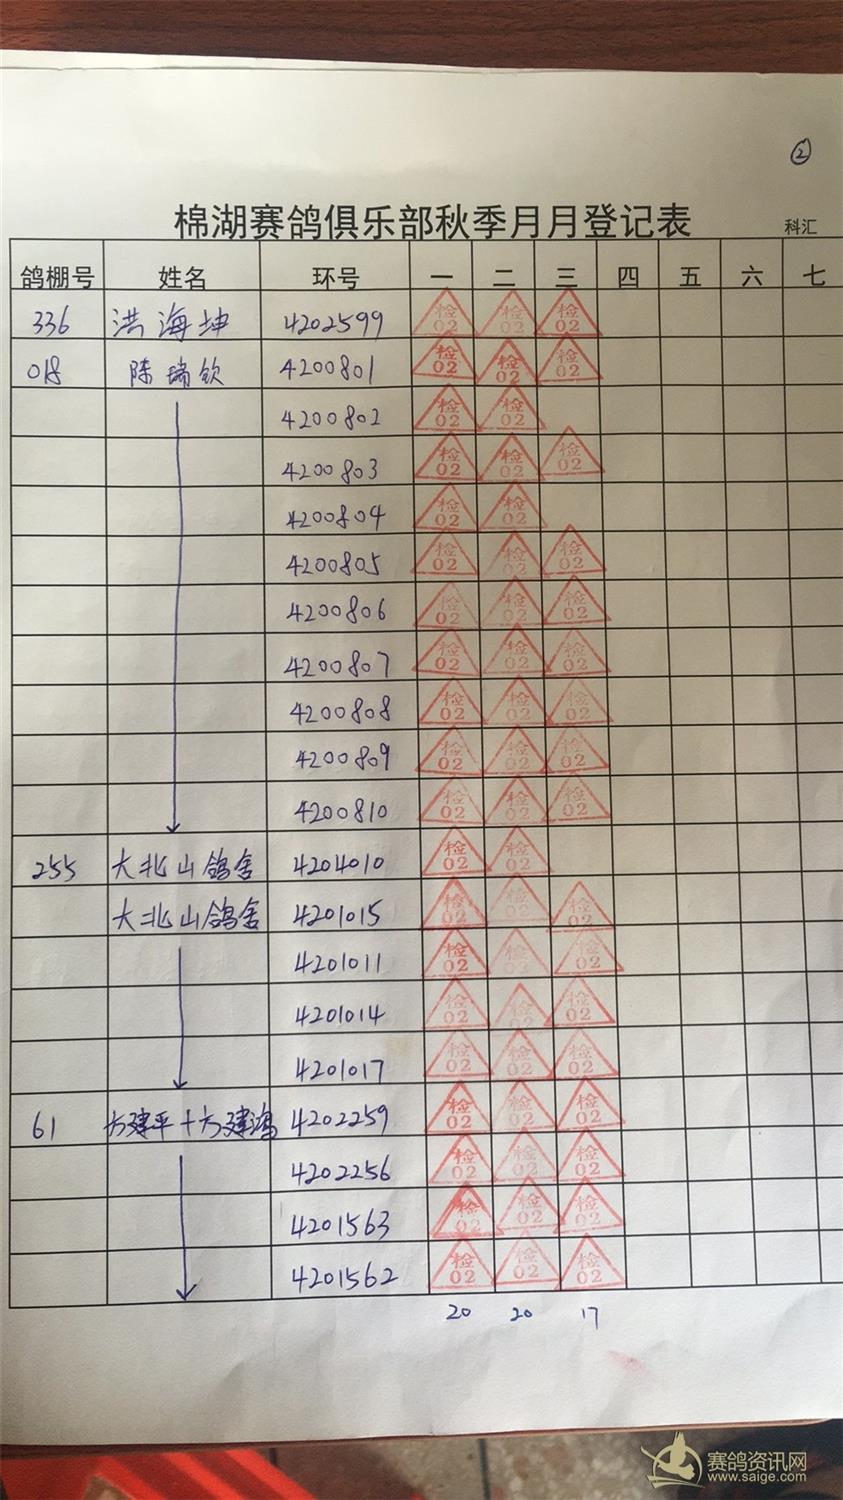 ②
棉湖赛鸽俱乐部秋季月月登记表 科汇
鸽棚号 姓名 环号 一 二 三 四 五 六 七
336 洪海坤 4202599 检02 检02 检02
018 陈瑞钦 4200801 检02 检02 检02
4200802 检02 检02
4200803 检02 检02 检02
4200804 检02 检02
4200805 检02 检02 检02
4200806 检02 检02 检02
4200807 检02 检02 检02
4200808 检02 检02 检02
4200809 检02 检02 检02
4200810 检02 检02 检02
255 大北山鸽舍 4204010 检02 检02
大北山鸽舍 4201015 检02 检02 检02
4201011 检02 检02 检02
4201014 检02 检02 检02
4201017 检02 检02 检02
61 方建平+方建鸿 4202259 检02 检02 检02
4202256 检02 检02 检02
4201563 检02 检02 检02
4201562 检02 检02 检02
20 20 17
赛鸽资讯网
www.saige.com